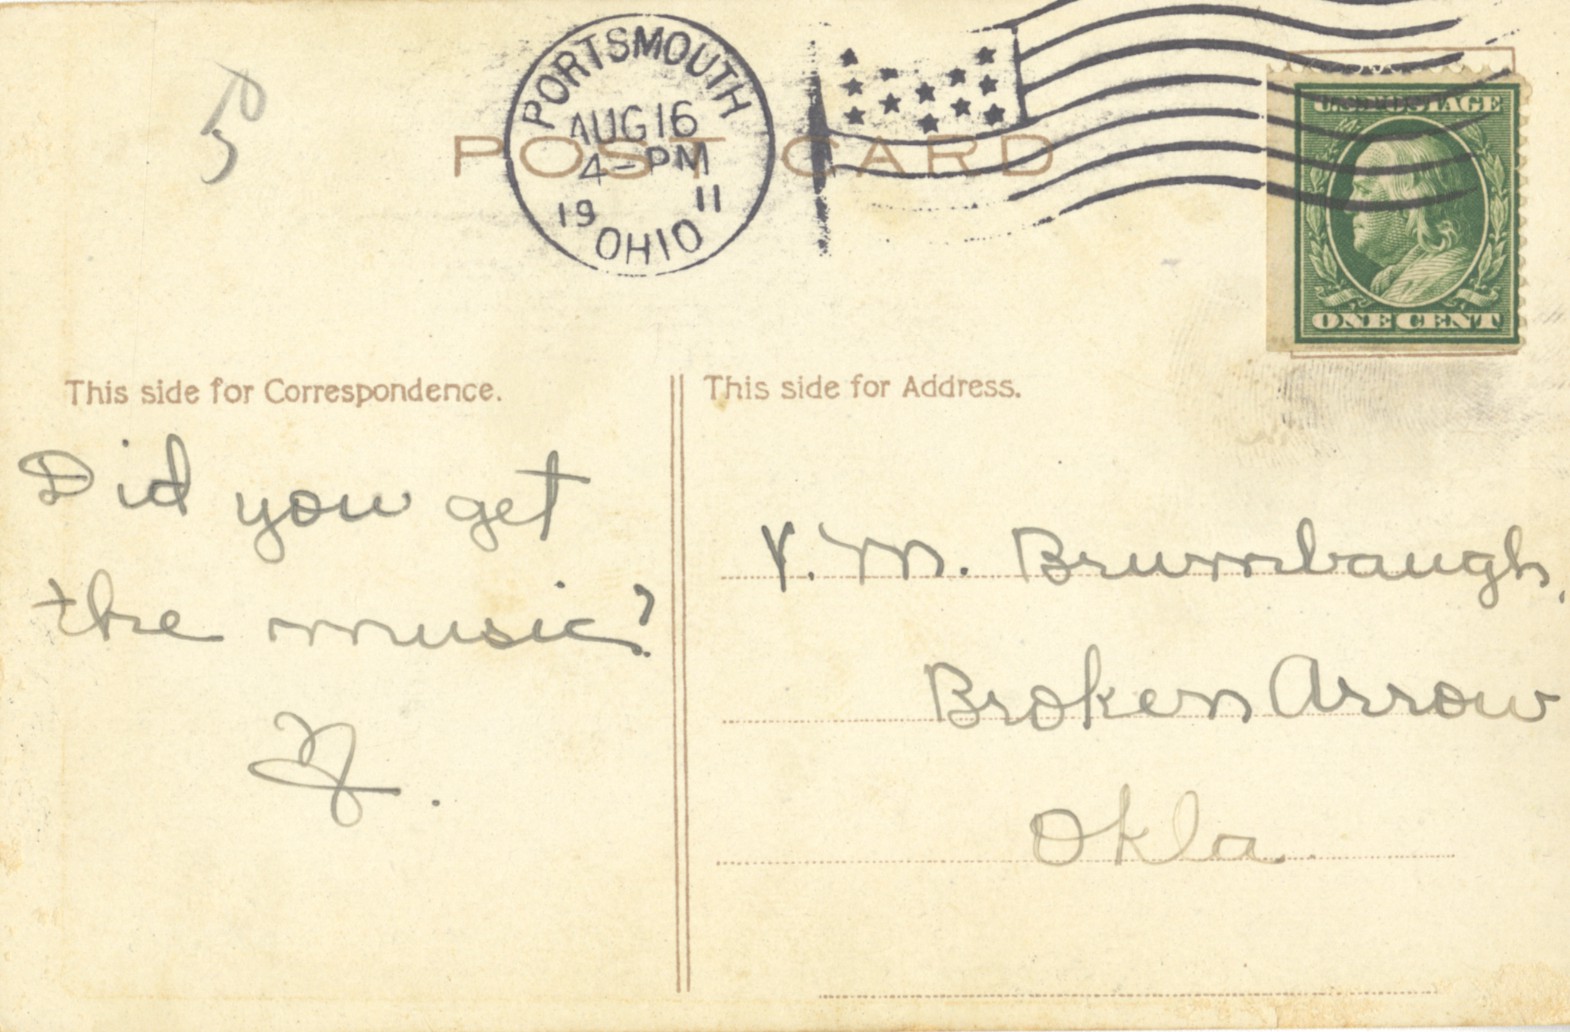 PORTSMOUTH
AUG 16
4-PM
19 11
OHIO
POST CARD
U.S. POSTAGE
ONE CENT
This side for Correspondence.
Did you get
the music?
This side for Address.
V. M. Brumbaugh,
Broken Arrow
Okla.